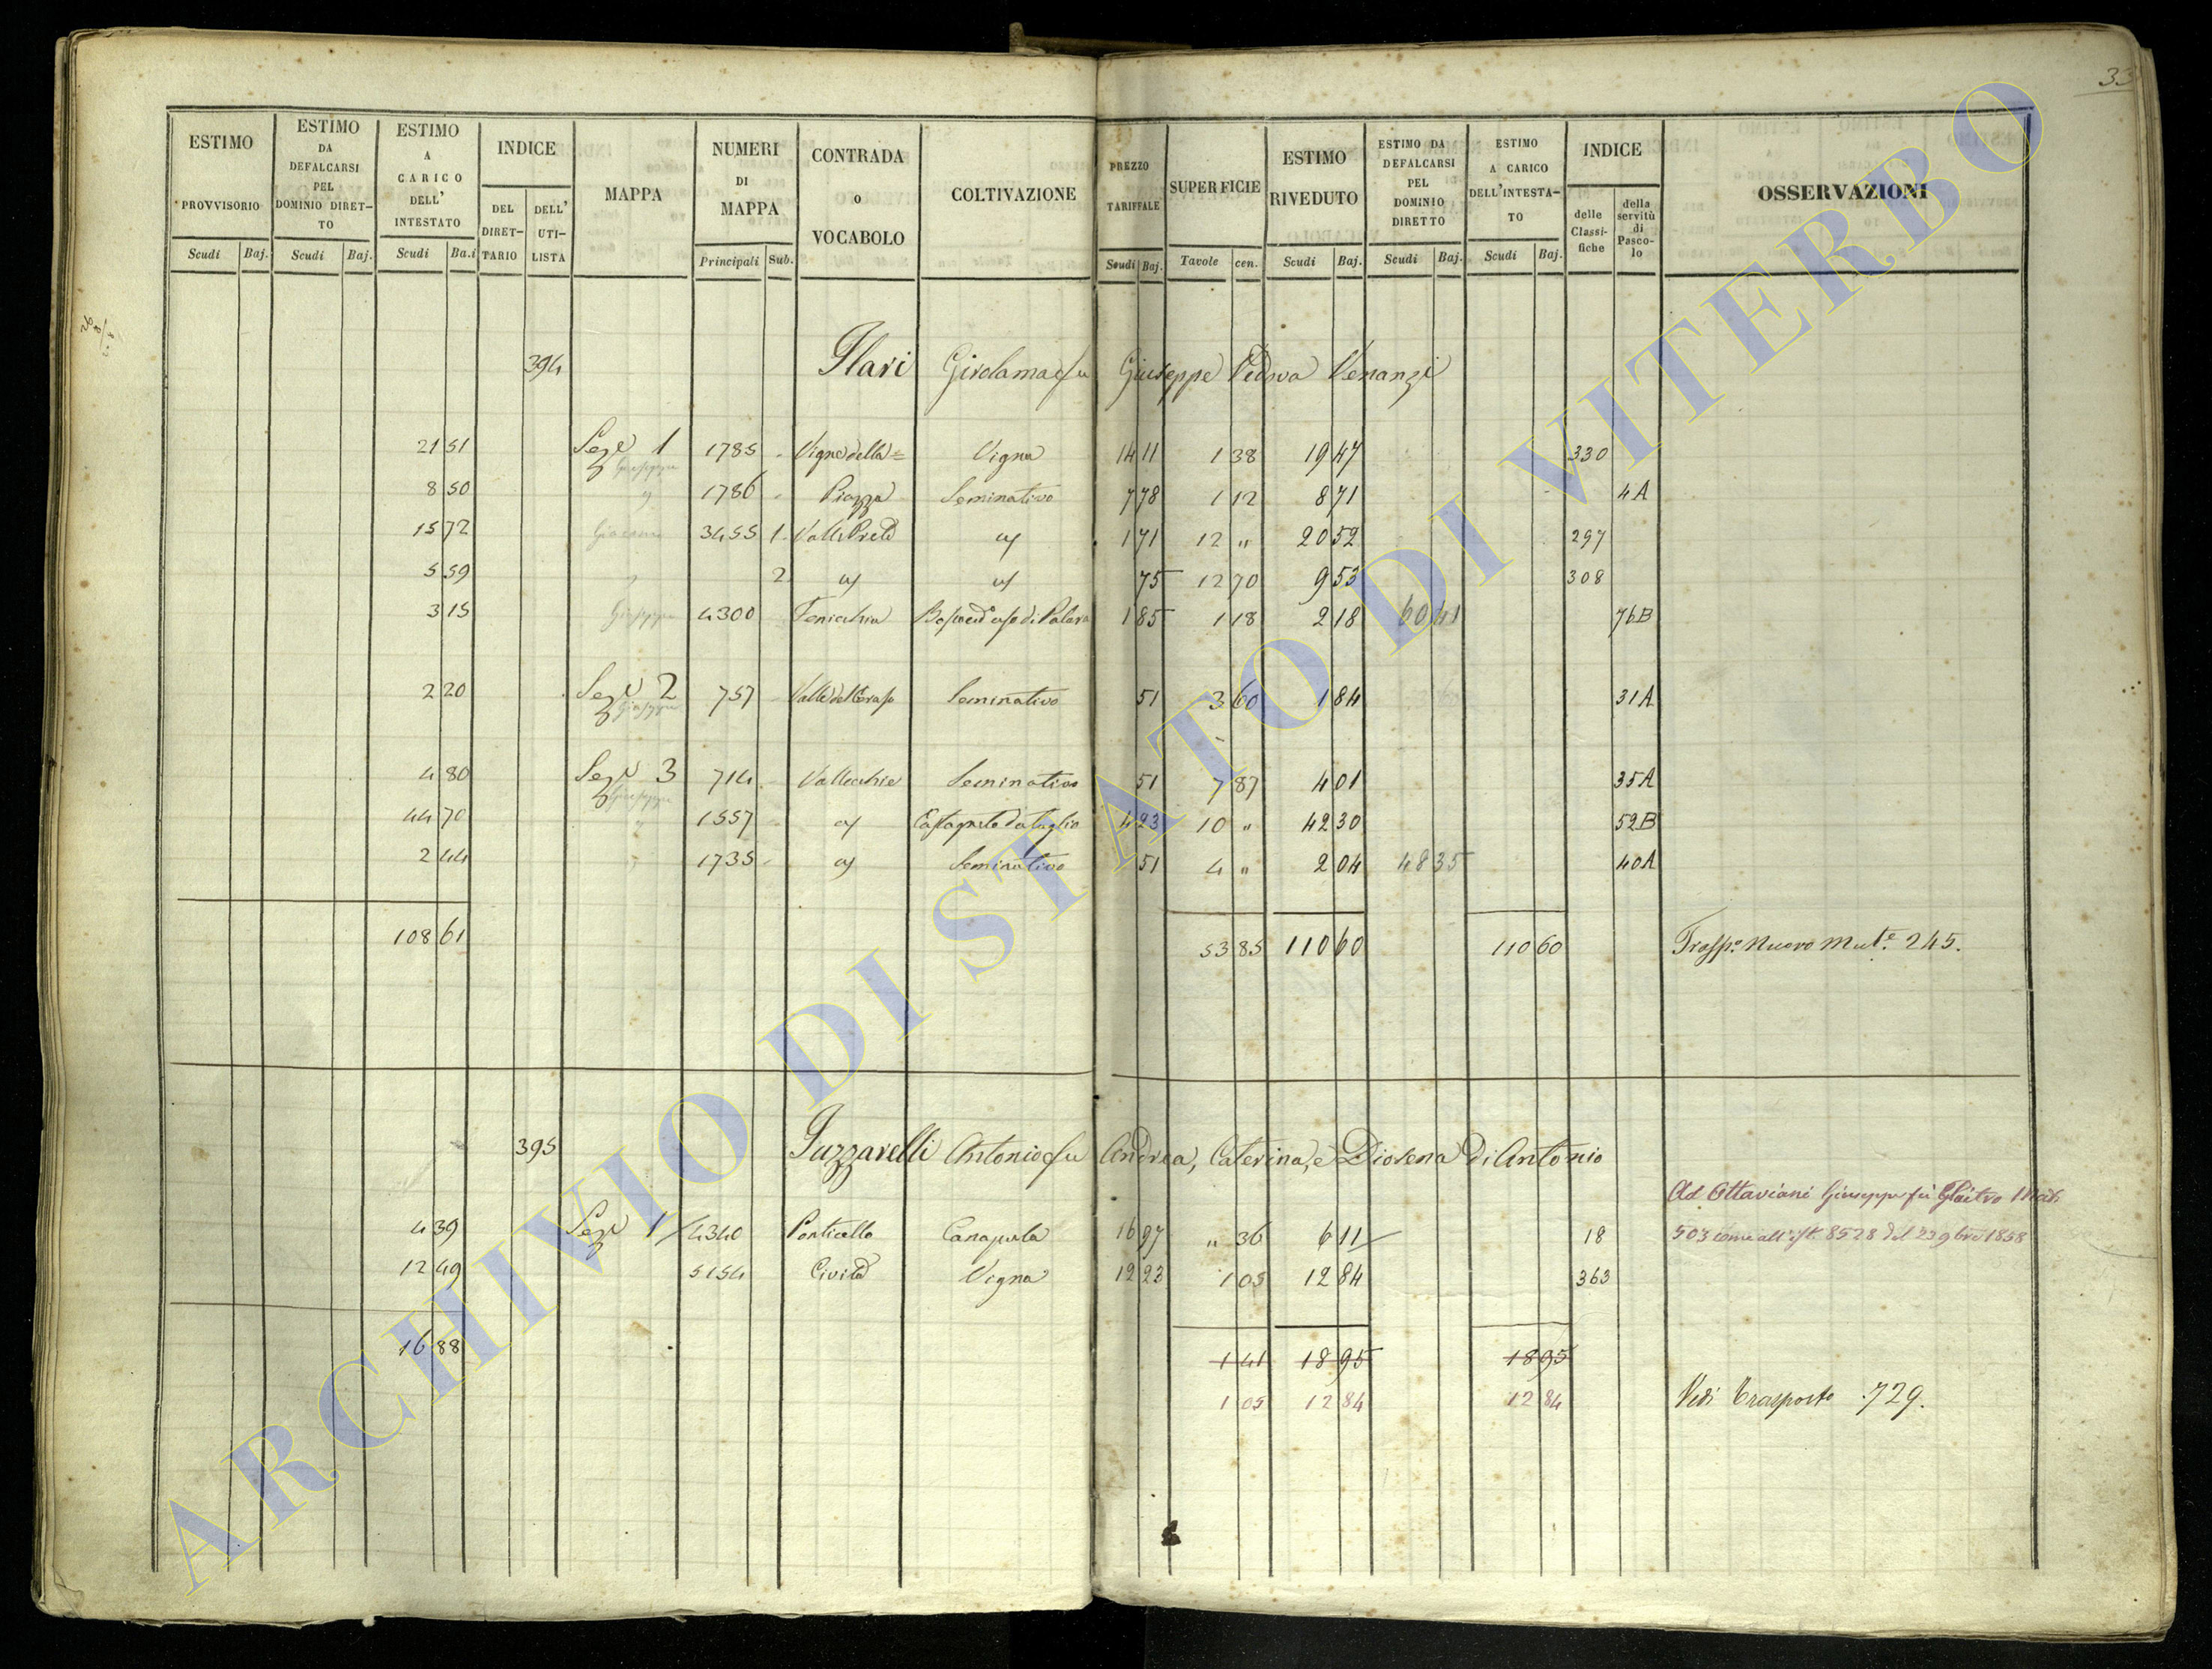 33
ESTIMO PROVVISORIO
ESTIMO DA DEFALCARSI PEL DOMINIO DIRETTO
ESTIMO A CARICO DELL' INTESTATO
INDICE
DEL DIRETTARIO
DELL' UTILISTA
MAPPA
NUMERI DI MAPPA
CONTRADA o VOCABOLO
COLTIVAZIONE
PREZZO TARIFFALE
SUPERFICIE
ESTIMO RIVEDUTO
ESTIMO DA DEFALCARSI PEL DOMINIO DIRETTO
ESTIMO A CARICO DELL'INTESTATO
INDICE
delle Classifiche
della servitù di Pascolo
OSSERVAZIONI
Scudi Baj. Scudi Baj. Scudi Ba.i Principali Sub. Scudi Baj. Tavole cen. Scudi Baj. Scudi Baj. Scudi Baj.
394 Ilari Girolama fu Giuseppe Vedova Venanzi
21 51 Sez.e 1 1785 Vigne della= Vigna 14 11 1 38 19 47 330
Giuseppe
8 50 " 1786 Piazza Seminativo 7 78 1 12 8 71 4A
15 72 Giacomo 3455 1 Valle Preta 1 71 12 " 20 52 297
5 59 2 75 12 70 9 53 308
3 15 Giuseppe 4300 Fenicchia 1 85 1 18 2 18 60 41 76B
2 20 Sez.e 2 757 Valle del Ceraso Seminativo 51 3 60 1 84 31A
Giuseppe
4 80 Sez.e 3 714 Vallecchie Seminativo 51 7 87 4 01 35A
Giuseppe
44 70 1557 Castagneto da taglio 4 23 10 " 42 30 52B
2 44 1735 Seminativo 51 4 " 2 04 48 35 40A
108 61 53 85 110 60 110 60 Trasp.o Nuovo Mut.e 245.
395 Iuzzarelli Antonio fu Andrea, Caterina, e Diosena di Antonio
Ad Ottaviani Giuseppe fu
4 39 Sez.e 1 4340 Ponticello Canapula 16 97 " 36 6 11 18 503 come all'ist. 8528 del 22 9bre 1858
12 49 5154 Civita Vigna 12 23 1 05 12 84 363
16 88 1 41 18 95 18 95
1 05 12 84 12 84 Vedi Trasporto 729.
ARCHIVIO DI STATO DI VITERBO